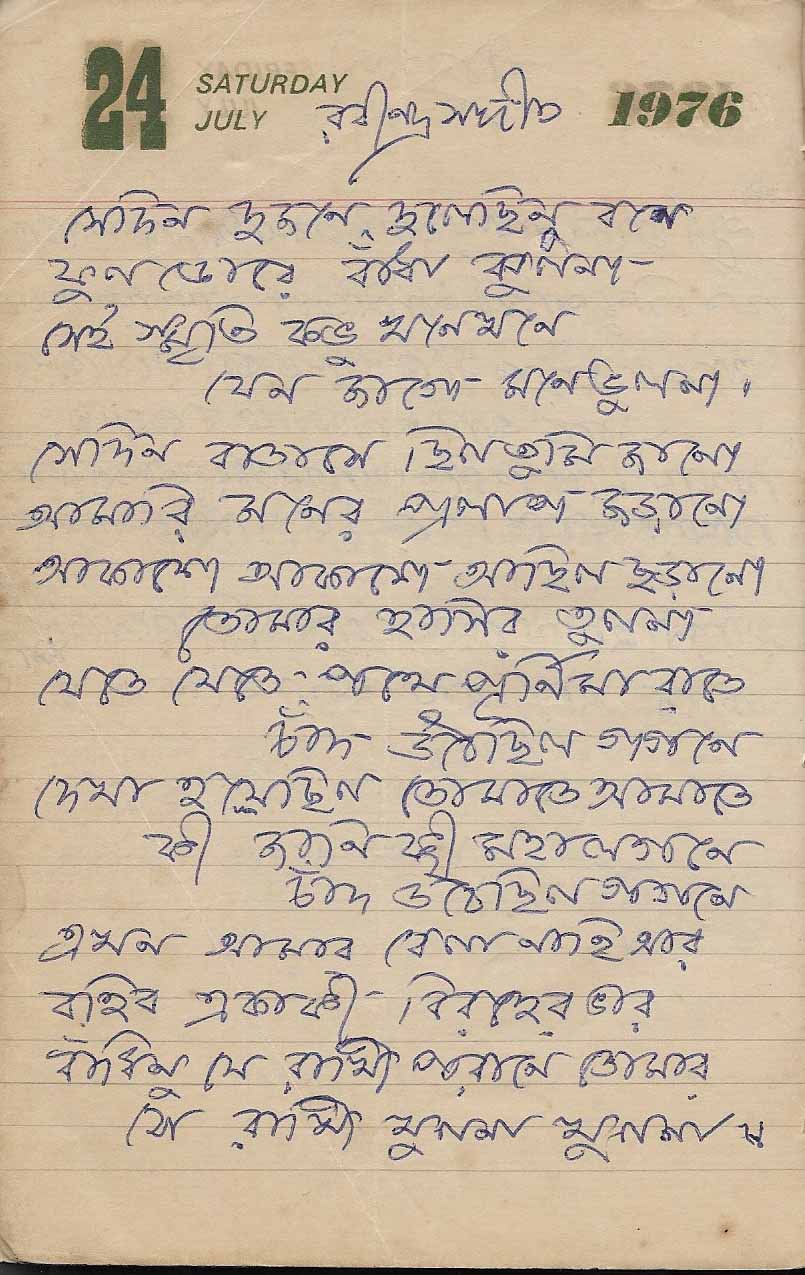 24 SATURDAY JULY 1976
রবীন্দ্রসঙ্গীত
সেদিন দুজনে দুলেছিনু বনে
ফুল ডোরে বাঁধা ঝুলনা
সেই স্মৃতি কভু খনেখনে
যেন জাগে মনেভুলনা।
সেদিন বাতাসে ছিলতুমি জানো
আমারি মনের প্রলাপ জড়ানো
আকাশে আকাশে আছিল ছড়ানো
তোমার হাসির তুলনা
যেতে যেতে পথে পূর্ণিমা রাতে
চাঁদ উঠেছিল গগনে
দেখা হয়েছিল তোমাতে আমাতে
কী জানি কী মহালগনে
চাঁদ উঠেছিল গগনে
এখন আমার বেলা নাহি আর
বহিব একাকী বিরহের ভার
বাঁধিনু যে রাখী পরানে তোমার
সে রাখী খুলনা খুলনা॥